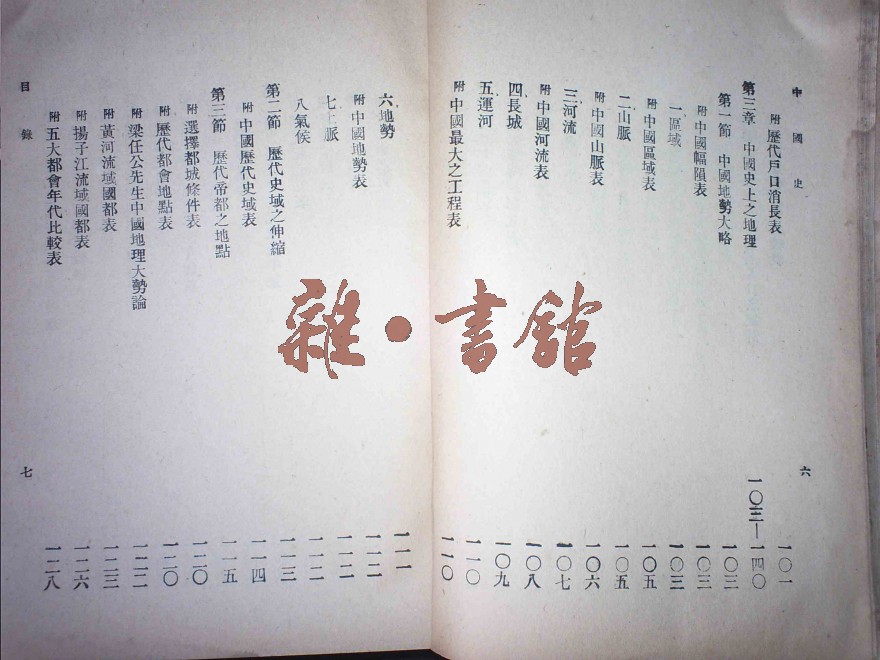 中國史 六
附 歷代戶口消長表 一〇一
第三章 中國史上之地理 一〇三—一四〇
第一節 中國地勢大略 一〇三
附 中國幅隕表 一〇三
一區域 一〇三
附 中國區域表 一〇五
二山脈 一〇五
附 中國山脈表 一〇六
三河流 一〇七
附 中國河流表 一〇八
四長城 一〇九
五運河 一一〇
附 中國最大之工程表 一一〇
六地勢 一一一
附 中國地勢表 一一二
七土脈 一一二
八氣候 一一二
第二節 歷代史域之伸縮 一一三
附 中國歷代史域表 一一四
第三節 歷代帝都之地點 一一五
附 選擇都城條件表 一二〇
附 歷代都會地點表 一二〇
附 梁任公先生中國地理大勢論 一二二
附 黃河流域國都表 一二三
附 揚子江流域國都表 一二六
附 五大都會年代比較表 一二八
目錄 七
雜·書館